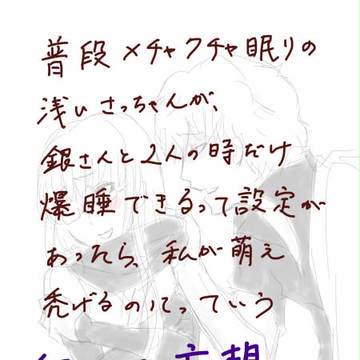 普段メチャクチャ眠りの
浅いさっちゃんが、
銀さんと2人の時だけ
爆睡できるって設定が
あったら、私が萌え
禿げるのにっていう
妄想